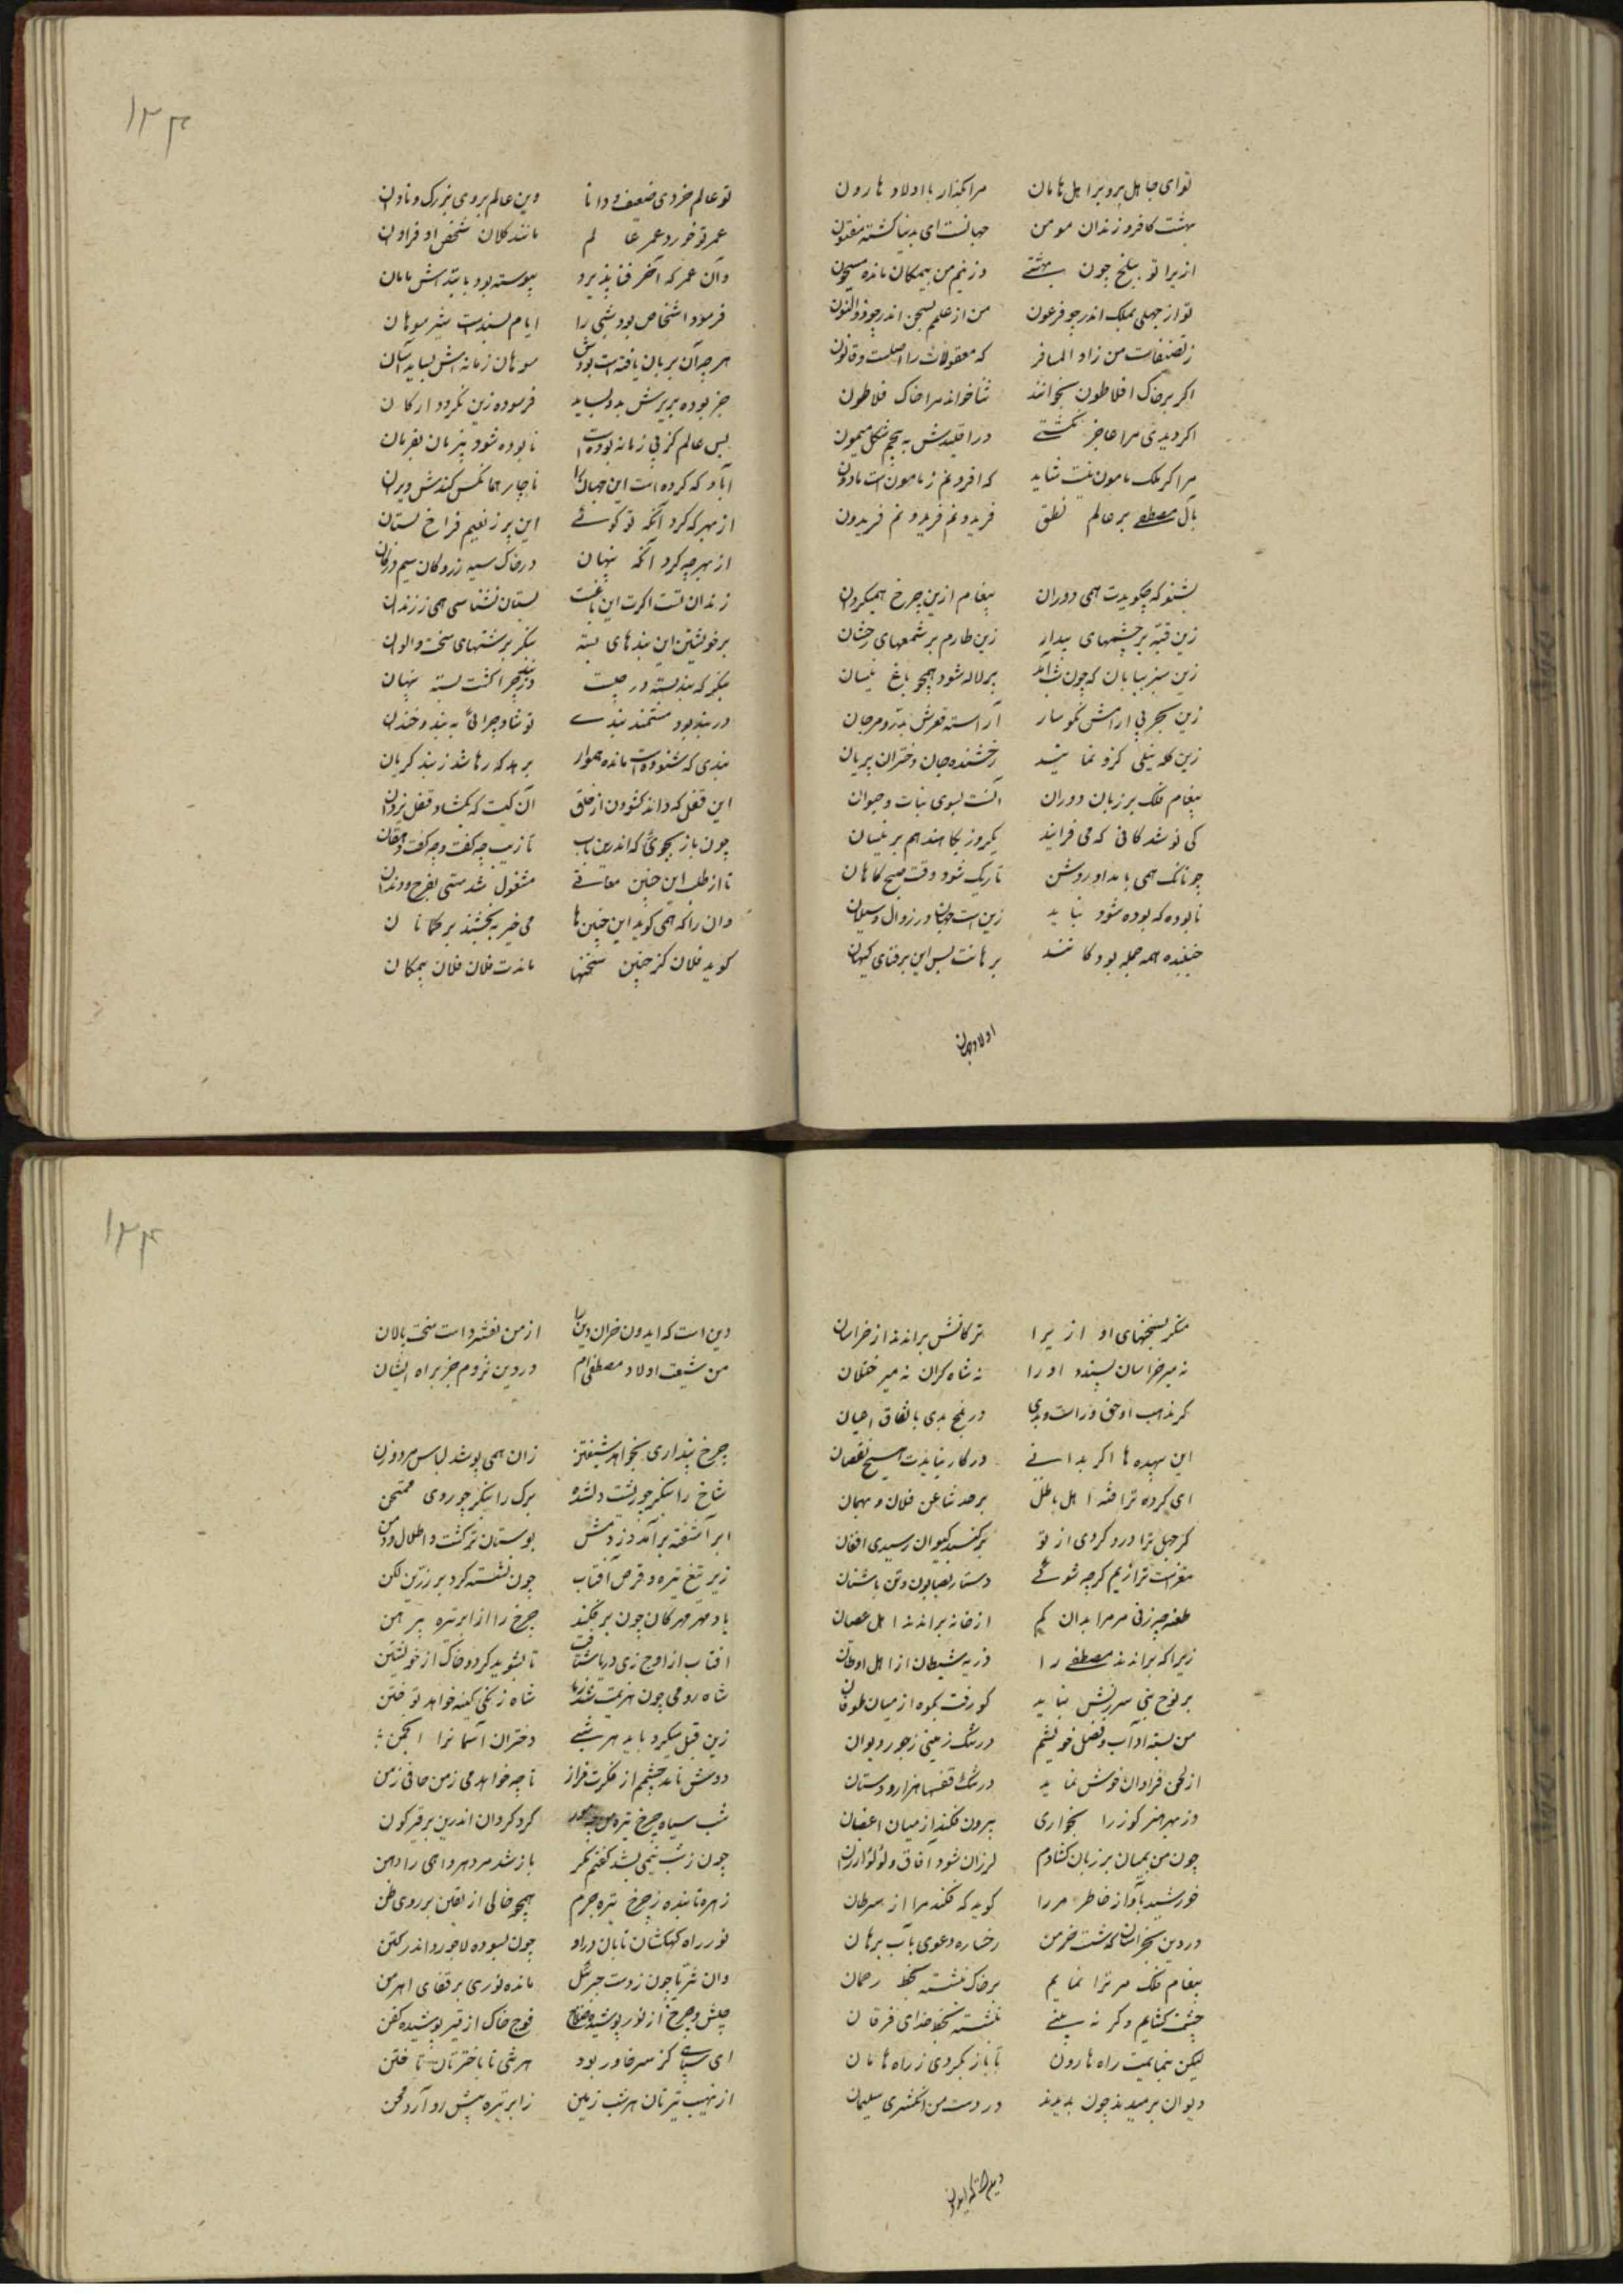 تو ای جاهل برو نزد اهل هامان مرا بگذار با اولاد هارون
بهشت کافر و زندان مومن جهانست ای بدنیا گشته مفتون
ازیرا تو ببلخ چون بهشتی وزینم من بیمکان مانده مسجون
تو از جهلی بملک اندر چو فرعون من از علمم بسجن اندر چو ذوالنون
ز تصنیفات من زاد المسافر که معقولات را اصلست و قانون
اگر بر خاک افلاطون بخوانند ثنا خواند مرا خاک فلاطون
اگر دیدی مرا عاجز نگشتی در اقلیدش به پنجم شکل میمون
مرا گر ملک مامون نیست شاید که افزونم ز مامون است مادون
بآل مصطفی بر عالم نطق فریدونم فریدونم فریدون
بشنو که چگویدت همی دوران پیغام ازین چرخ همیگردان
زین قبه پر چشمهای بیدار زین طارم پر شمعهای رخشان
زین سبز بیابان که چون شب آید پر لاله شود همچو باغ نیسان
زین بحر بی آرامش نگوسار آراسته قعرش بدر و مرجان
زین کله نیلی کزو نمایند رخشنده جهان دختران پریان
پیغام فلک بر زبان دوران آنست بسوی نبات و حیوان
کی نو شدکانی که می فزایند یکروز بکاهند هم بر نیسان
چونانک همی بامداد روشن تاریک شود وقت صبح گاهان
نابوده که بوده شود نپاید زین است جهان در زوال و سیلان
جنبنده همه جمله بودگانند برهانت بس این بر فنای کیهان
اولاد جهان
۱۲۳
تو عالم خردی ضعیف و دانا وین عالم بروی بزرگ و نادان
عمر تو خورد عمر عالم مانند کلان شخص او فراوان
وان عمر که آخر فنا پذیرد پیوسته بود بابتداش پایان
فرسوده اشخاص بودنی را ایام بسند است تیز سوهان
هرچ آن بزمان یافته است بودش سوهان زمانه اش بساید آسان
جز بوده بریزش بد و بساید فرسوده زین نگردد ارکان
پس عالم گر بی زمانه بوده است نابوده شود بی زمان بفرمان
آباد که کرده است این جهان را ناچار همانکس کندش ویران
از بهر که کرد آنکه تو گوئی این پر ز نعیم فراخ بستان
از بهر چه کرد آنگه پنهان در خاک سیه زر و کان سیم در کان
زندان تست اگرت این باغست بستان نشناسی همی ز زندان
بر خویشتن این بندهای بسته بنگر برشتهای سخت و الوان
بنگر که بند بسته در چیست در بند چرا گشت بسته پنهان
در بند بود مستمند بندی تو شاد چرائی به بند و خندان
بندی که شنودست مانده هموار بر هر که رها شد ز بند گریان
این قفل که داند گشودن از خلق آن کیست که بگشاد قفل یزدان
چون باز بجوئی که اندرین باب تازیت چه گفت و چه گفت دهقان
تا از طلب این چنین معانی مشغول شدستی بفرج و دندان
وان را که همی گوید این چنین ها می خیر به بخشند بر حکمانان
گوید فلان کز چنین سخنها ماندت فلان فلان بیمکان
منگر بسخنهای او ازیرا ترکانش براندند از خراسان
نه میر خراسان پسندد او را نه شاه گران نه میر ختلان
گر مذهب او حق و راست بودی در بلخ بدی باتفاق اعیان
این بیهده ها اگر بدانی در کار نیایدت هیچ نقصان
ای کرده ترا فتنه اهل باطل بر حدثنا عن فلان و بهمان
گر جهل ترا درد کردی از تو بر گنبد کیوان رسیدی افغان
مغزست ترا ریم گرچه شوئی دستار بصابون و تن باشنان
طعنه چه زنی مر مرا بدان کم از خانه براندند اهل عصیان
زیرا که براندند مصطفی را ذریه شیطان از اهل اوطان
بر نوح نبی سرزنش نیاید کو رفت بکوه از میان طوفان
من بسته آداب و فضل خویشم در تنگ زمینی ز جور دیوان
از لحن فراوان خوش نماید در تنگ قفسها هزار دستان
وز بهر هنر گوز را بخواری بیرون فکند از میان اغصان
چون من بمیان بر زبان گشادم لرزان شود آفاق و لؤلؤ ارزان
خورشید بآواز خاطر مرا گوید که فکند مرا از سرطان
در دین بخراسان که شست جز من رخساره دعوی بآب برهان
پیغام فلک مر ترا نمایم بر خاک نبشته بخط رحمان
چشمت گشایم دگر نه بینی نبشته بخط خدای فرقان
لیکن ننمایمت راه هارون تا باز نگردی ز راه هامان
دیوان برمیدند چون بدیدند در دست من انگشتری سلیمان
دین است که ایدون
۱۲۴
دین است که ایدون خران دین را از من نفشرد است سخت پالان
من شیعت اولاد مصطفی ام در دین نروم جز براه ایشان
چرخ پنداری بخواهد شیفتن زان همی پوشد لباس پر درن
شاخ را بنگر چو پشت دلشده برگ را بنگر چو روی ممتحن
ابر آشفته برآمد وز دمش بوستان پر گشت و اطلال و دمن
زیر تیغ تیره و قرص آفتاب چون نشسته گرد بر زرین لگن
باد مهرگان چون بر فکند چرخ را از ابر تیره پیرهن
افتاب از اوج زی دریا شتافت تا بشوید گرد و خاک از خویشتن
شاه رومی چون هزیمت شد ز ما شاه زنگی کینه خواهد توختن
زین قبل میکرد باید هر شبی دختران آسمانرا انجمن
دوش تا آمد چشمم از فکرت فراز تا چه خواهد می زمن جافی زمن
شب سیاه و چرخ تیره من چو گرد گردان اندرین پر قیر گون
چون ز شب نیمی بشد گفتم مگر باز شد مر دهر داهی را دهن
زهره تابنده ز چرخ تیره جرم همچو خالی از یقین بر روی ظن
نور راه کهکشان تابان درو چون بسوده لاجورد اندر لگن
وان ثریا چون ز دست جبرئیل مانده نوری بر قفای اهرمن
فوج خاک از قیر پوشیده کفن
ای سپاهی کز سر خاور بود هر شبی تا باختر تان تاختن
از نهیب تیرتان هر شب زمین زابر تیره پیش رو آرد مجن